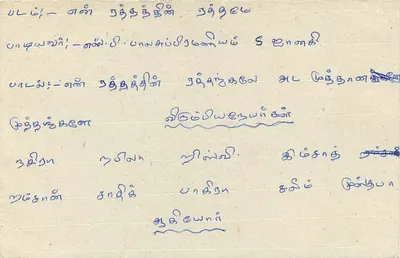 படம்:- என் ரத்தத்தின் ரத்தமே
பாடியவர்:- எஸ்.பி. பாலசுப்பிரமணியம் S ஜானகி
பாடல்:- என் ரத்தத்தின் ரத்தங்களே அட முத்தான
முத்தங்களே விரும்பியநேயர்கள்
நதிரா நபிலா றில்வி கிம்சாத்
றம்சான் சாதிக் பாகிரா சலீம்
ஆகியோர்